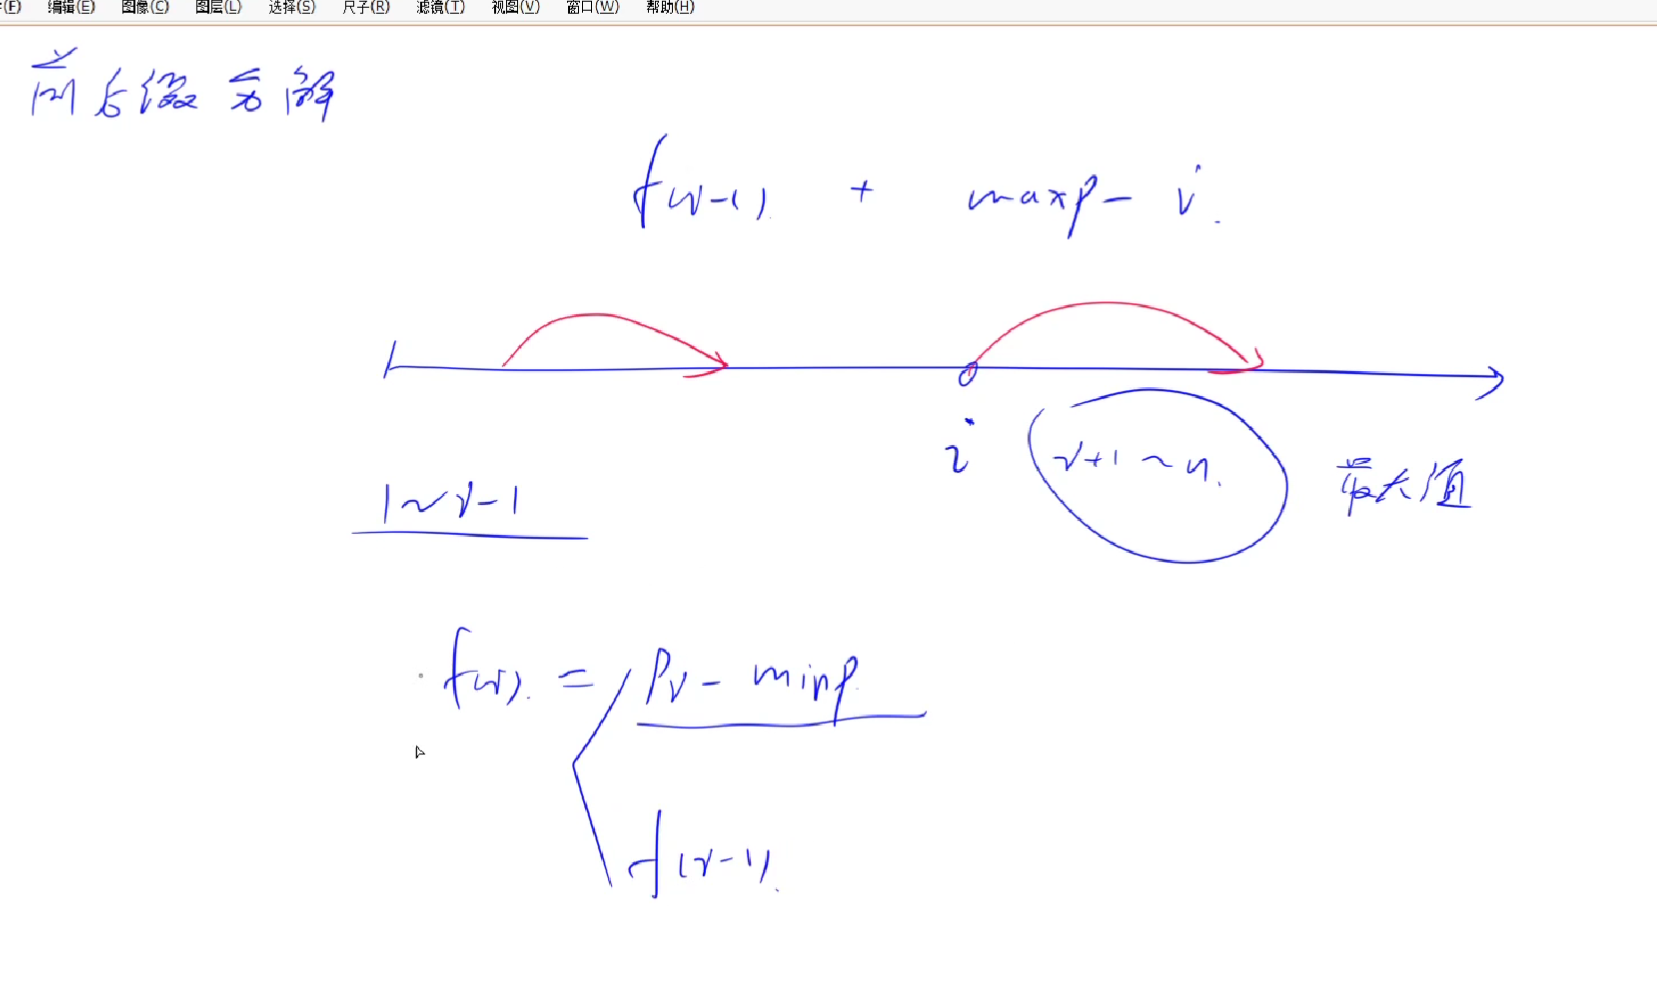 编辑(E) 图像(C) 图层(L) 选择(S) 尺子(R) 滤镜(T) 视图(V) 窗口(W) 帮助(H)
前后缀分解
f(i-1) + maxp - i
i
i+1~n
最大值
1~i-1
f(i) = Pi - minp
f(i-1)